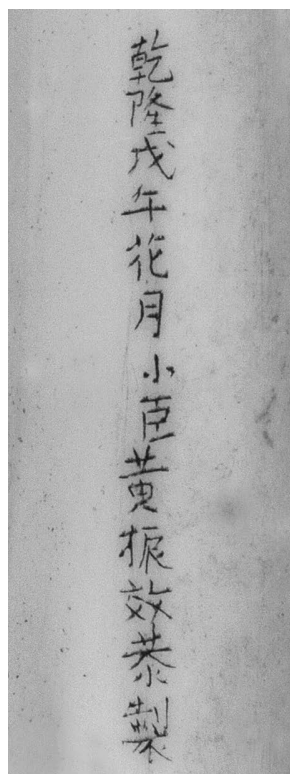 乾隆戊午花月小臣黄振效恭製